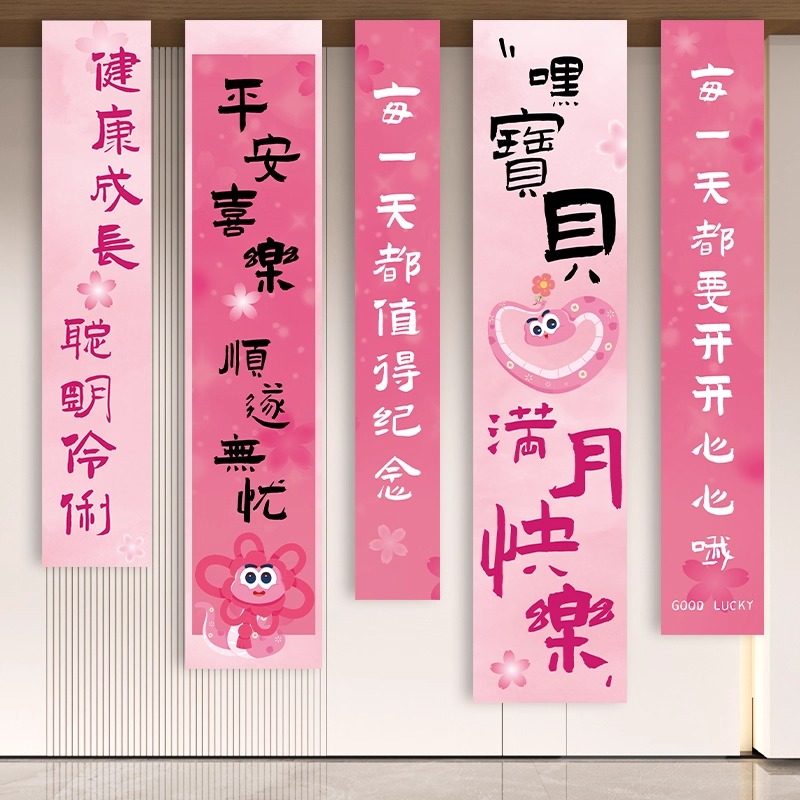 健康成長
聪明伶俐
平安喜樂
順遂無忧
每一天都值得纪念
"嘿寶貝
满月快樂"
每一天都要开开心心哦
GOOD LUCKY